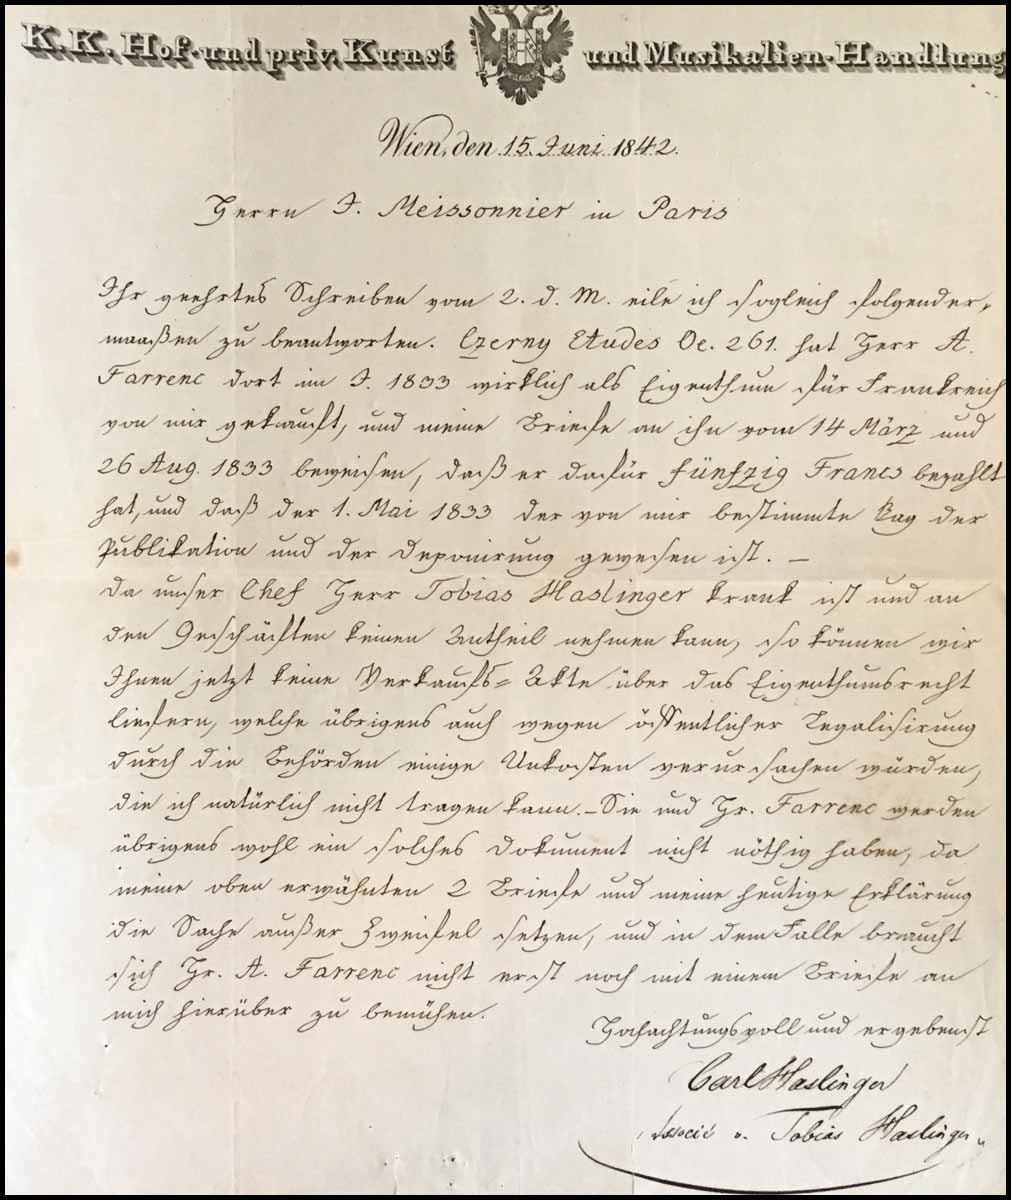 K. K. Hof- und priv. Kunst und Musikalien-Handlung
Wien, den 15. Juni 1842.
Herrn J. Meissonnier in Paris
Ihr geehrtes Schreiben vom 2. d. M. eile ich sogleich folgender-
maaßen zu beantworten. Czerny Etudes Oe. 261. hat Herr A.
Farrenc dort im J. 1833 wirklich als Eigenthum für Frankreich
von mir gekauft, und meine Briefe an ihn vom 14 März und
26 Aug. 1833 beweisen, daß er dafür fünfzig Francs bezahlt
hat, und daß der 1. Mai 1833 der von mir bestimmte Tag der
Publikation und der Deponirung gewesen ist. —
Da unser Chef Herr Tobias Haslinger krank ist und an
den Geschäften keinen Antheil nehmen kann, so können wir
Ihnen jetzt keine Verkaufs-Akte über das Eigenthumsrecht
liefern, welche übrigens auch wegen öffentlicher Legalisirung
durch die Behörden einige Unkosten verursachen würden,
die ich natürlich nicht tragen kann. — Sie und Hr. Farrenc werden
übrigens wohl ein solches Dokument nicht nöthig haben, da
meine oben erwähnten 2 Briefe und meine heutige Erklärung
die Sache außer Zweifel setzen, und in dem Falle braucht
sich Hr. A. Farrenc nicht erst noch mit einem Briefe an
mich hierüber zu bemühen.
Hochachtungsvoll und ergebenst
Carl Haslinger
Associé v. Tobias Haslinger